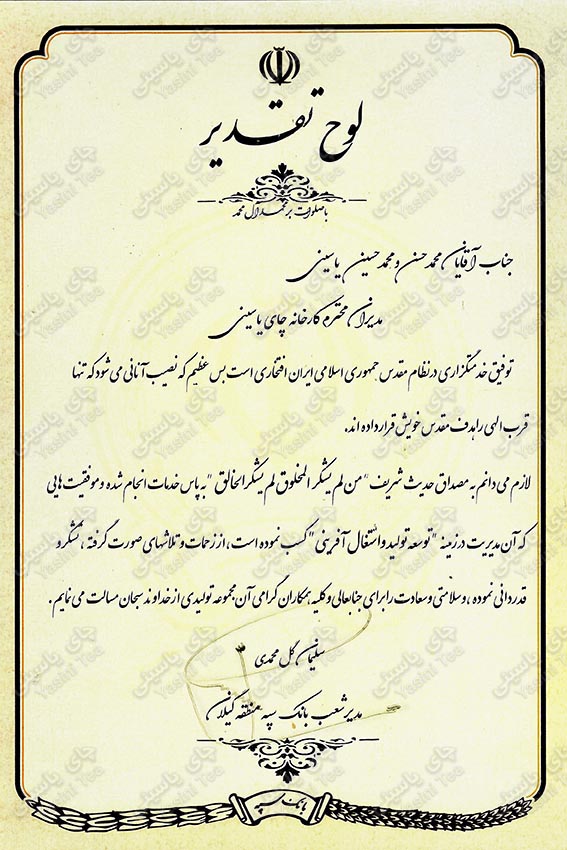 لوح تقدیر
با صلوات بر محمد و آل محمد
جناب آقایان محمد حسن و محمد حسین یاسینی
مدیران محترم کارخانه چای یاسینی
توفیق خدمتگزاری در نظام مقدس جمهوری اسلامی ایران افتخاری است بس عظیم که نصیب آنانی می شود که تنها
قرب الهی را هدف مقدس خویش قرار داده اند.
لازم می دانم به مصداق حدیث شریف "من لم یشکر المخلوق لم یشکر الخالق" به پاس خدمات انجام شده و موفقیت هایی
که آن مدیریت در زمینه "توسعه تولید و اشتغال آفرینی" کسب نموده است، از زحمات و تلاشهای صورت گرفته، تشکر و
قدردانی نموده، و سلامتی و سعادت را برای جنابعالی و کلیه همکاران گرامی آن مجموعه تولیدی از خداوند سبحان مسالت می نمایم.
سلیمان گل محمدی
مدیر شعب بانک سپه منطقه گیلان
بانک سپه
چای یاسینی
Yasini Tea